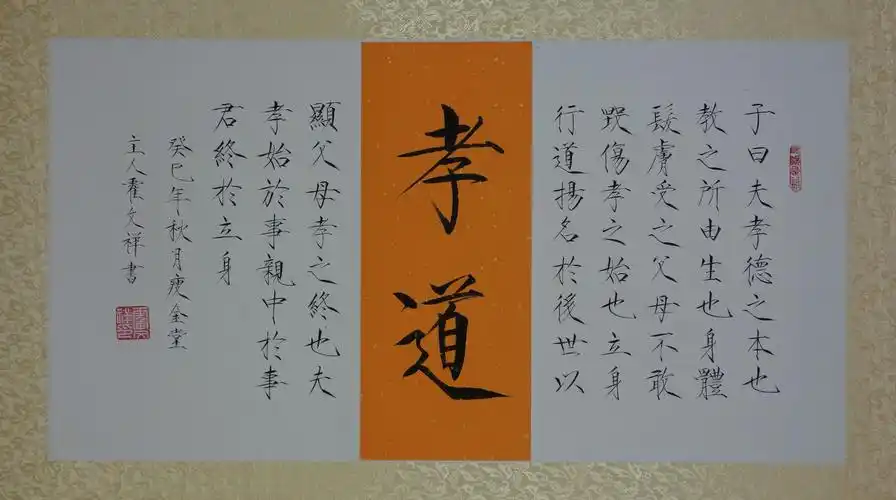 子曰夫孝德之本也
教之所由生也身體
髮膚受之父母不敢
毀傷孝之始也立身
行道揚名於後世以
孝道
顯父母孝之終也夫
孝始於事親中於事
君終於立身
癸巳年秋月瘦金堂
主人霍文祥書